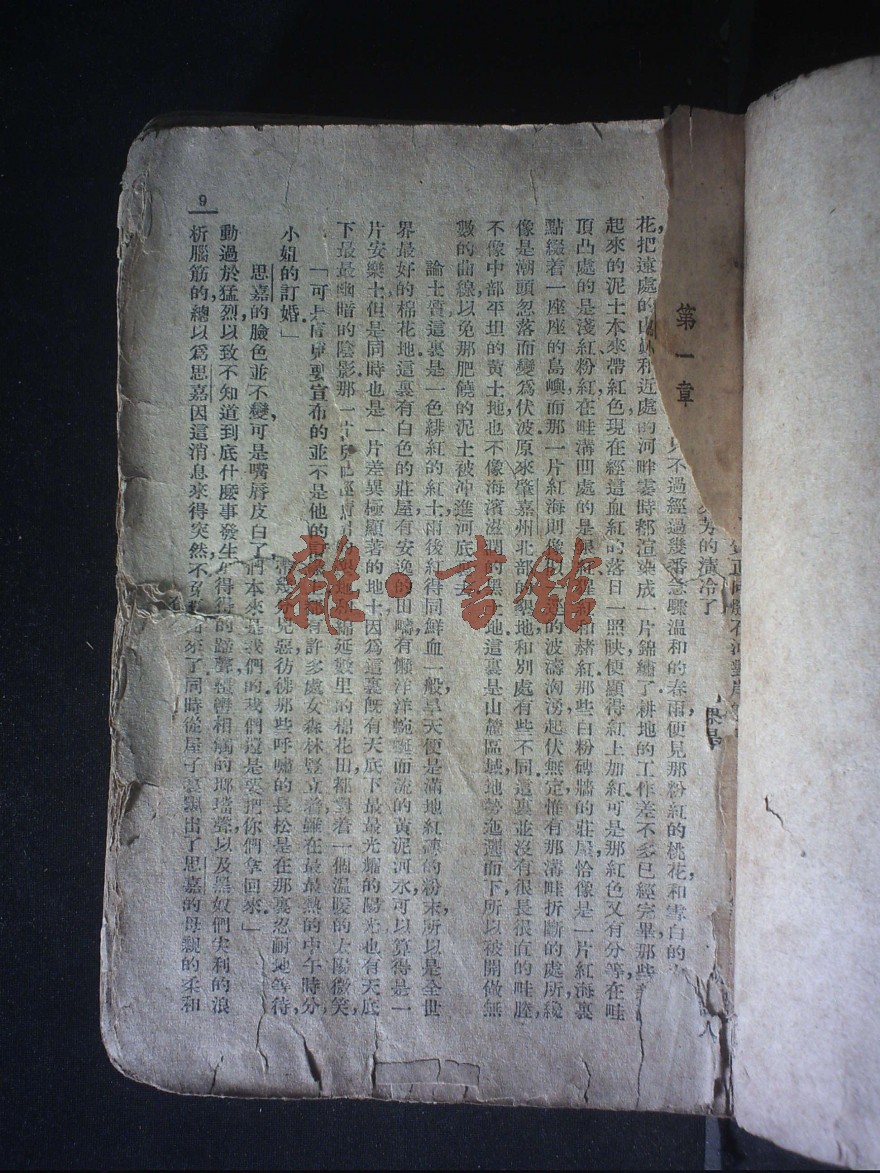 第一章
芳的清冷了
不過經過幾番急驟溫和的春雨，便見那粉紅的桃花，和雪白的
花，把遠處的山林和近處的河畔霎時都渲染成一片錦繡了。耕地的工作差不多已經完畢，那些
起來的泥土本來帶紅色，現在經這血紅的落日一照映，便顯得紅上加紅。可是那紅色又有分等，在畦
頂凸處的是淺紅、粉紅，在畦溝凹處的是銀紅、猩紅和赭紅。那些白粉磚牆的莊屋，恰像是一片紅海裏
點綴着一座座的島嶼，而那一片紅海則像以一種的波濤洶湧，起伏無定，惟有那溝畦折斷的處所，纔
像是潮頭忽落而變爲伏波。原來肇嘉州北部的墾地，和別處有些不同，這裏並沒有很長很直的畦塍，
不像中部平坦的黃土地，也不像海濱滋潤的黑土地。這裏是山麓區域，地勢迤邐而下，所以被開做無
數的曲線，以免那肥饒的泥土被冲進河底去。
論土質，這裏是一色緋紅的紅土，雨後紅得同鮮血一般，旱天便是滿地紅磚的粉末，所以是全世
界最好的棉花地。這裏有白色的莊屋，有安逸的田疇，有懶洋洋蜿蜒而流的黃泥河水，可以算得是一
片安樂土，但是同時也是一片差異極顯著的地土，因爲這裏旣有天底下最最光耀的陽光，也有天底
下最最幽暗的陰影。那一片綿延數里的棉花田，都對着一個溫暖的太陽微笑，
有許多處女森林豎立着，雖在最最熱的中午時分，
見惡，彷彿那些呼嘯的長松是在那裏忍耐地等待，
們本來是我們的。我們還是要把你們拿回來。」
得得的蹄聲，韁轡相觸的瑯璫聲，以及黑奴們尖利的浪
「可是 要宣布的並不是他的
小姐的訂婚。」
思嘉的臉色並不變，可是嘴脣皮白了，
動過於猛烈，以致不知道到底什麼事發生
析腦筋的，總以爲思嘉因這消息來得突然，不免
來了。同時從屋子裏飄出了思嘉的母親的柔和
9
雜·書館